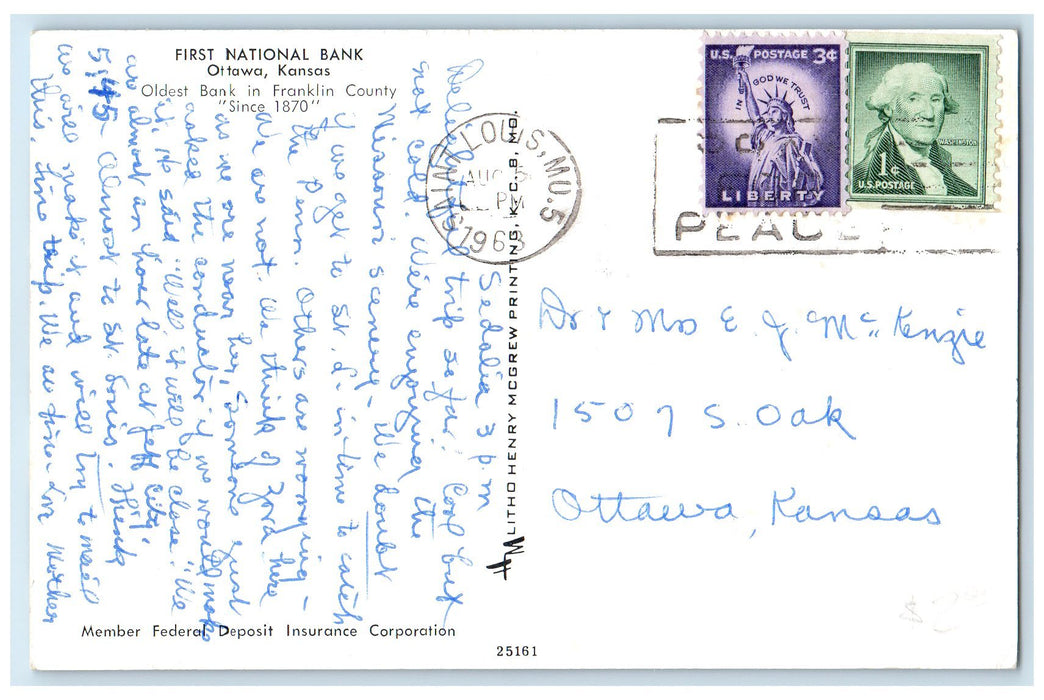 FIRST NATIONAL BANK
Ottawa, Kansas
Oldest Bank in Franklin County
"Since 1870"
Sedalia 3 p.m
Delightful trip so far. Cool but
not cold. We're enjoying the
Missouri scenery - We doubt
if we get to St. L. in time to catch
the Penn. Others are worrying -
We are not. We think of Zora here
as we are near her, Someone just
asked the conductor if we would make
it, he said "Well it will be close." We
are almost an hour late at Jeff City,
5:45- Almost to St. Louis. Think
we will make it and will try to mail
this. Fine trip. We are fine - Love Mother
Member Federal Deposit Insurance Corporation
LITHO HENRY MCGREW PRINTING, K. C. 8, MO.
HM
25161
SAINT LOUIS, MO. 5
AUG
PM
1963
U.S. POSTAGE 3¢
IN GOD WE TRUST
LIBERTY
WASHINGTON
1¢
U.S. POSTAGE
PEACE
Dr & Mrs E. J. McKenzie
1507 S. Oak
Ottawa, Kansas